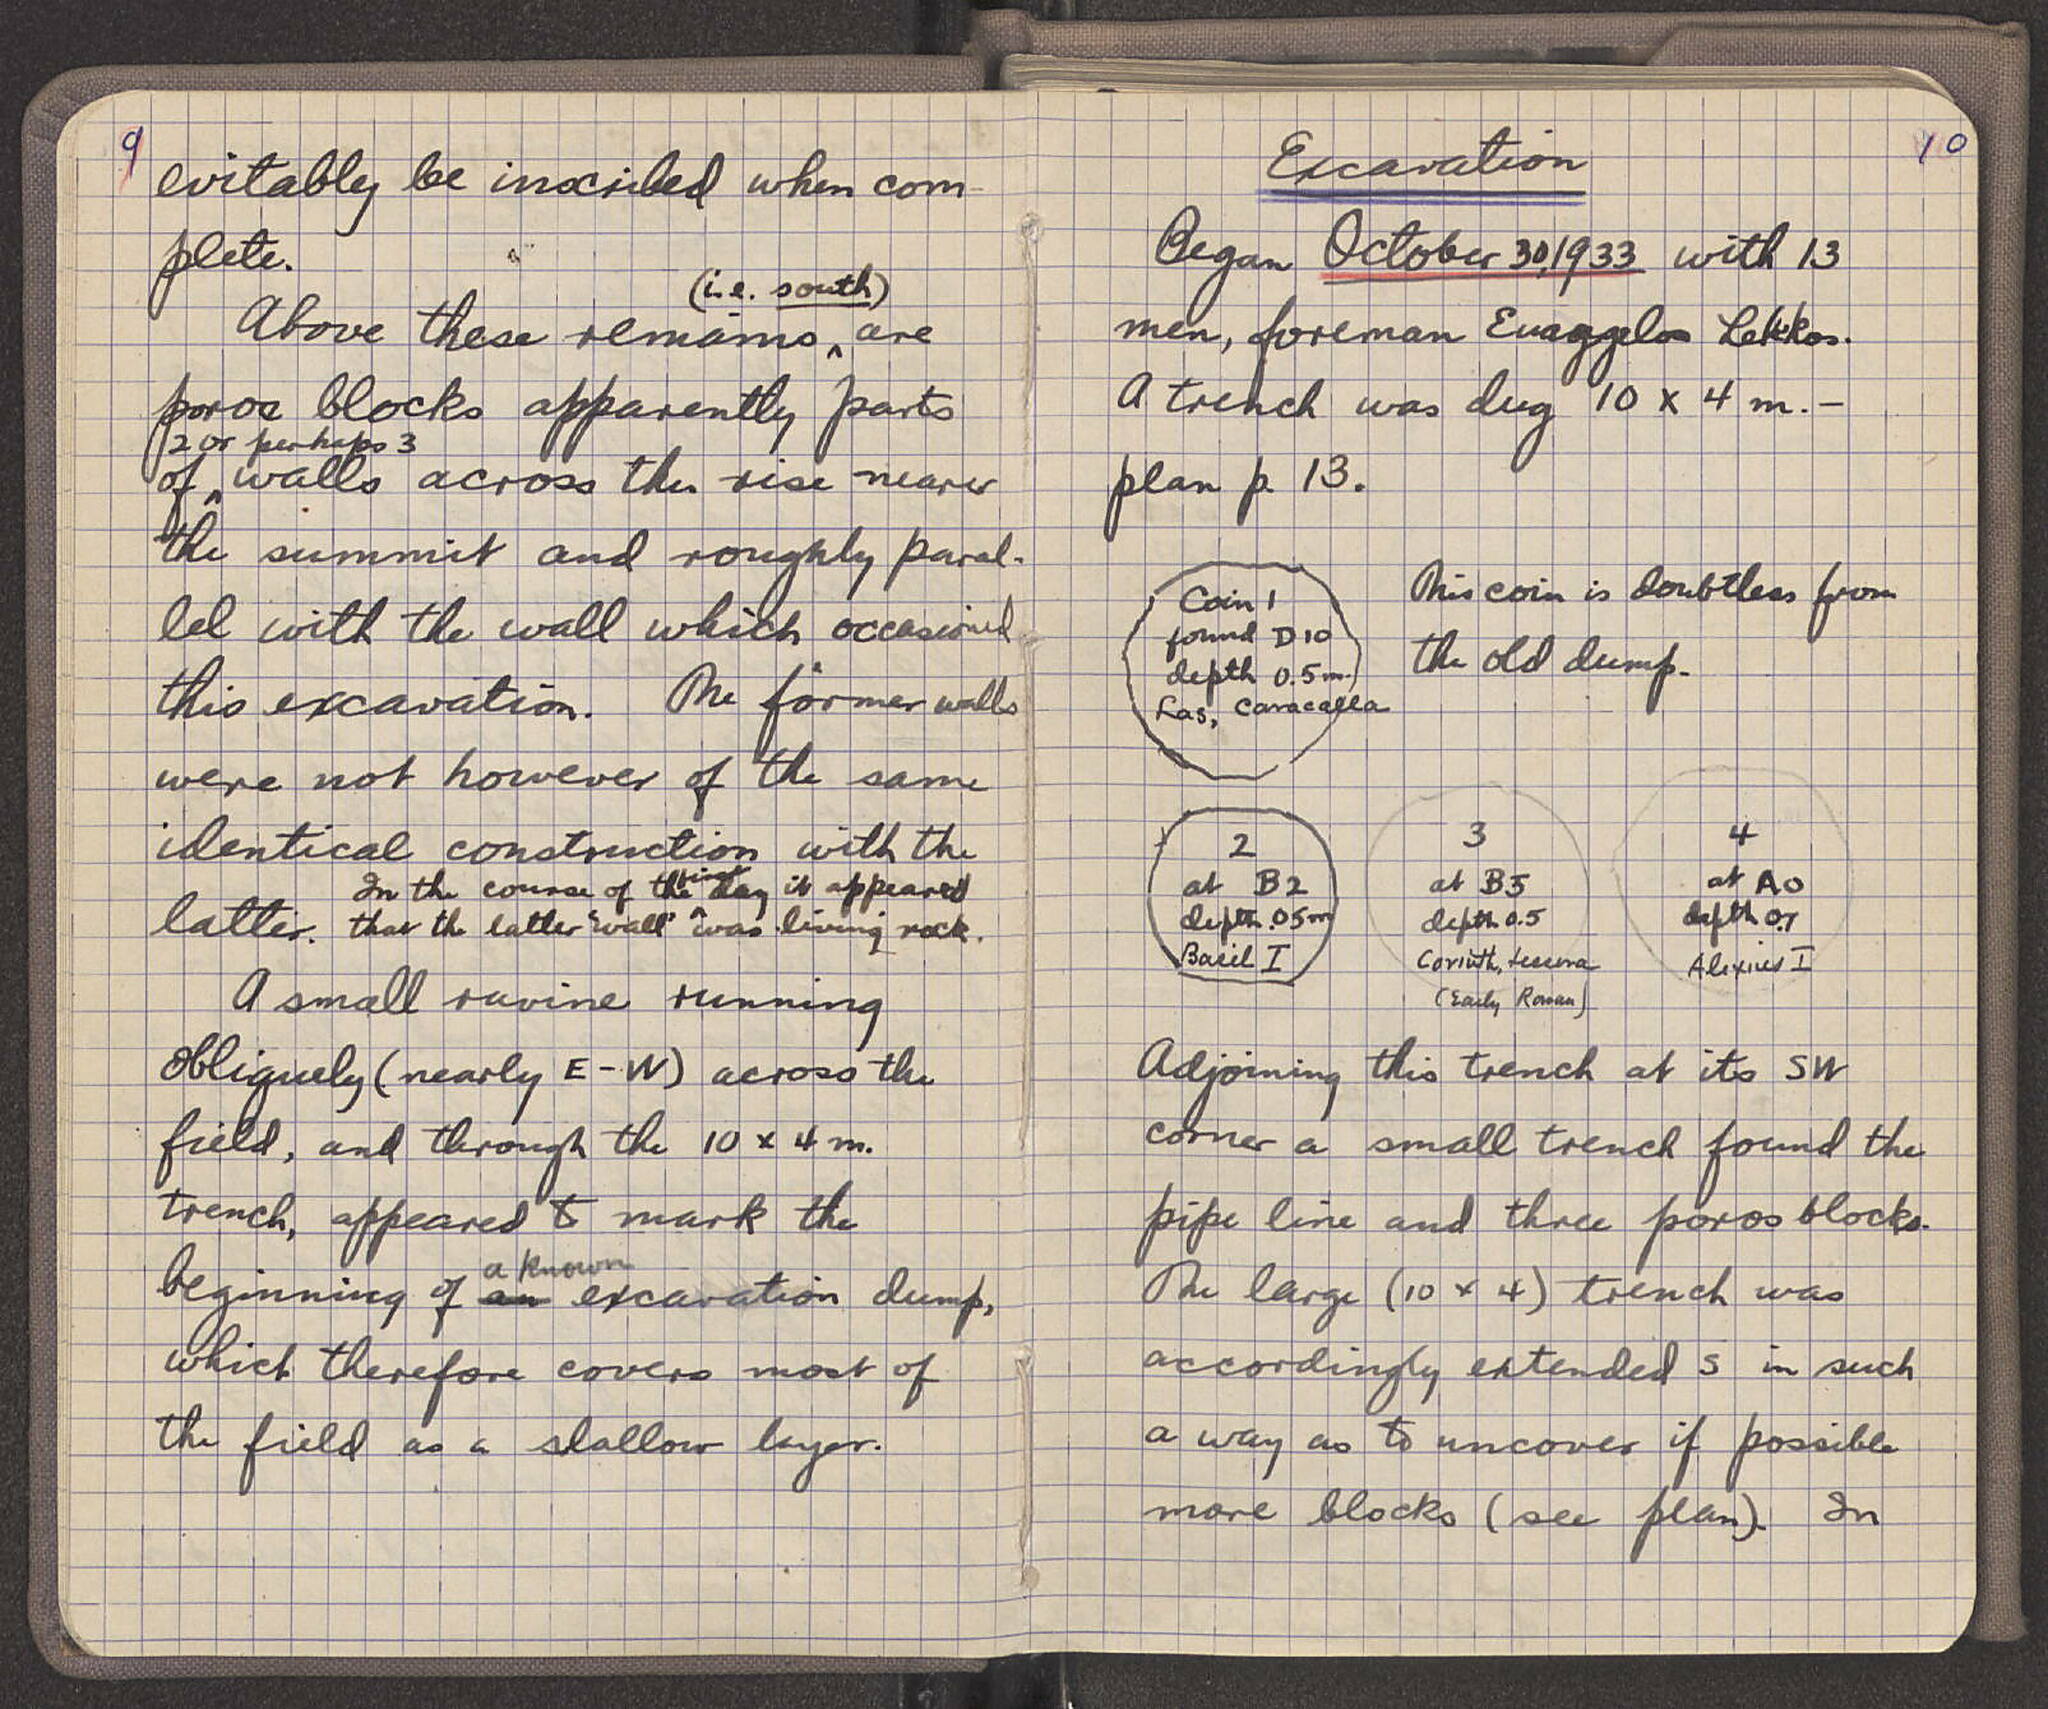 9
evitably be inscribed when com-
plete.
(i.e. south)
Above these remains ‸ are
poros blocks apparently parts
2 or perhaps 3
of ‸ walls across the rise nearer
the summit and roughly paral-
lel with the wall which occasioned
this excavation. The former walls
were not however of the same
identical construction with the
In the course of the ‸ first day it appeared
latter. that the latter "wall" was living rock.
A small ravine running
obliquely (nearly E-W) across the
field, and through the 10 x 4 m.
trench, appeared to mark the
a known
beginning of an excavation dump,
which therefore covers most of
the field as a shallow layer.
10
Excavation
Began October 30, 1933 with 13
men, foreman Evaggelos Lekkos.
A trench was dug 10 x 4 m.-
plan p. 13.
Coin 1
found D10
depth 0.5 m.
Las, Caracalla
This coin is doubtless from
the old dump.
2
at B2
depth .05m
Basil I
3
at B5
depth 0.5
Corinth, tessera
(Early Roman)
4
at A0
depth 0.7
Alexius I
Adjoining this trench at its SW
corner a small trench found the
pipe line and three poros blocks.
The large (10 x 4) trench was
accordingly extended S in such
a way as to uncover if possible
more blocks (see plan). In